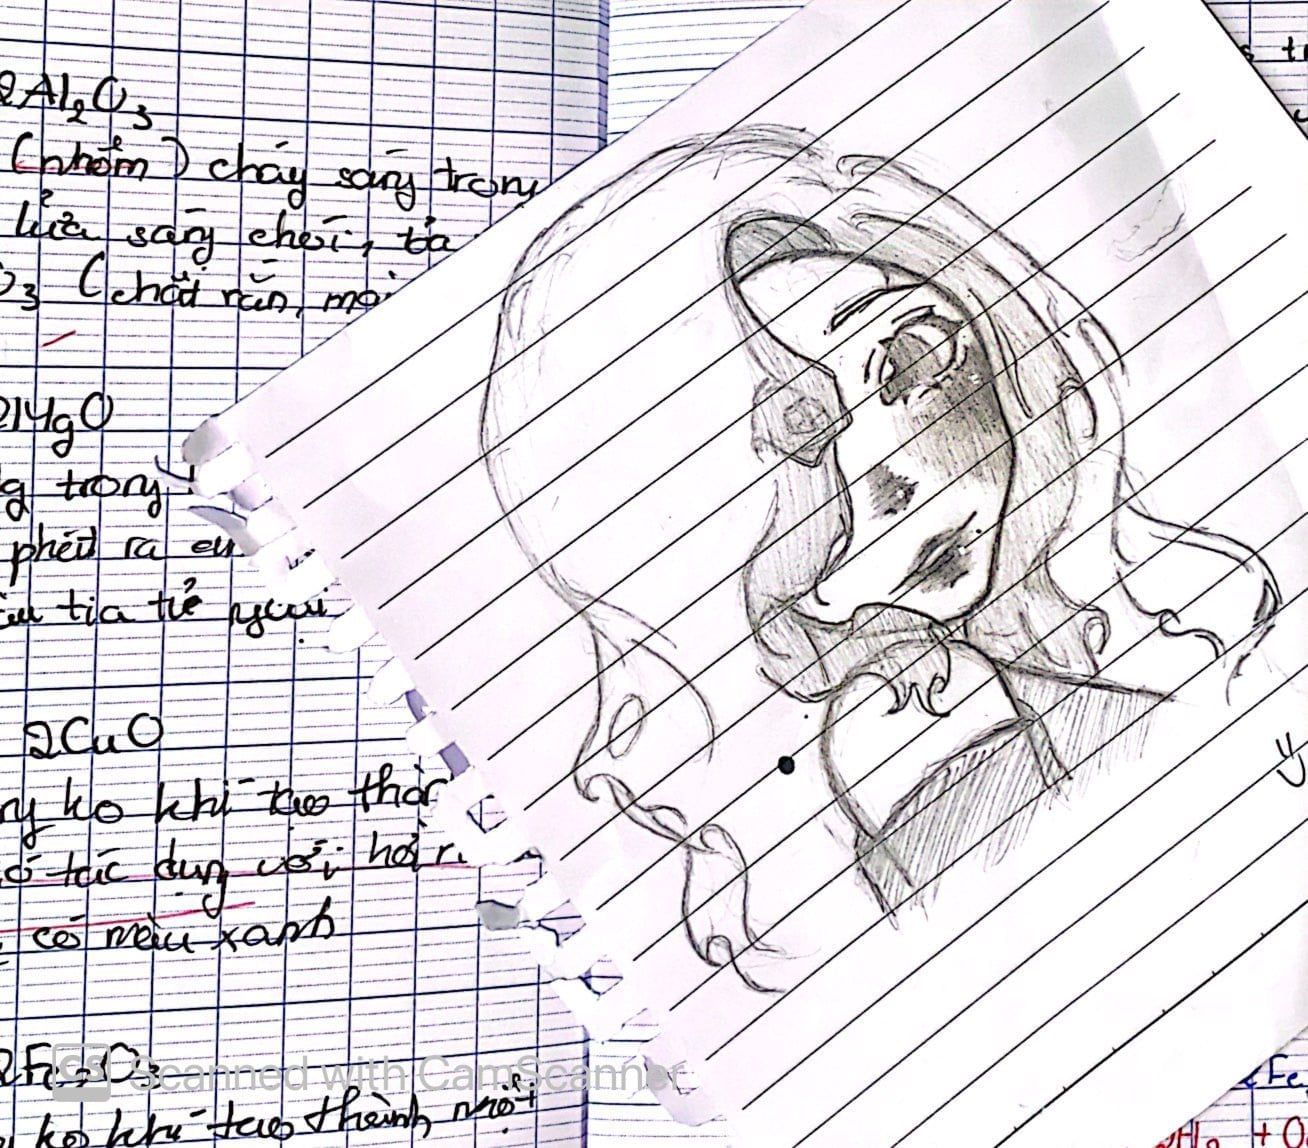 2Al₂O₃
(nhôm) cháy sáng trong
lửa sáng chói, tỏa
O₃ (chất rắn, mà
2MgO
g trong
phẩn ra
tia tử ngoại
2CuO
ko khí tạo thàn
ó tác dụng với hơi
có màu xanh
2Fe₂O₃
ko khí tạo thành một
CS Scanned with CamScanner
y
Fe
H₂ + O